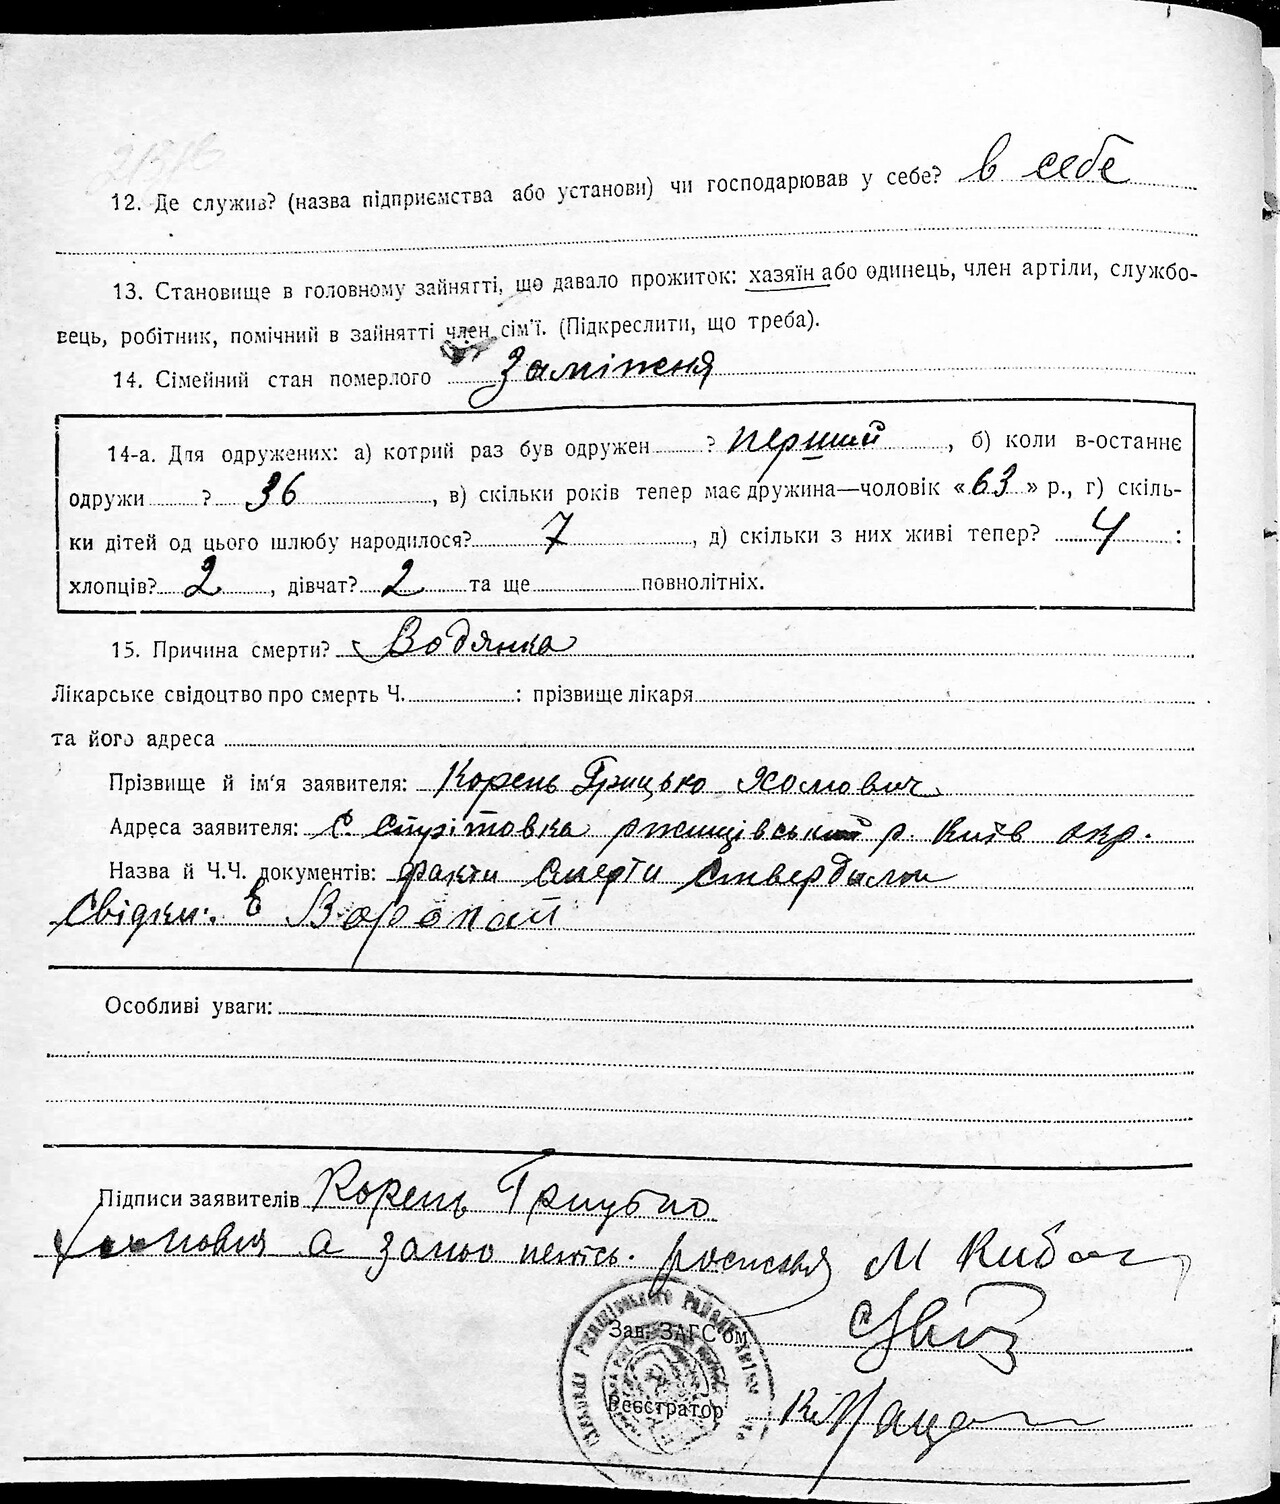 12. Де служив? (назва підприємства або установи) чи господарював у себе? в себе
13. Становище в головному зайнятті, що давало прожиток: хазяїн або одинець, член артіли, службо-
вець, робітник, помічний в зайнятті член сім'ї. (Підкреслити, що треба).
14. Сімейний стан померлого Заміжня
14-а. Для одружених: а) котрий раз був одружен ? перший, б) коли в-останнє
одружи ? 36, в) скільки років тепер має дружина—чоловік «63» р., г) скіль-
ки дітей од цього шлюбу народилося? 7, д) скільки з них живі тепер? 4 :
хлопців? 2, дівчат? 2 та ще повнолітніх.
15. Причина смерти? Водянка
Лікарське свідоцтво про смерть Ч. : прізвище лікаря
та його адреса
Прізвище й ім'я заявителя: Корень Грицько Хомович
Адреса заявителя: с. Стрітовка ржищівський р. Київ окр.
Назва й Ч.Ч. документів: факти смерти ствердили
свідки: Воропай
Особливі уваги:
Підписи заявителів Корень Грицько
а за нього непись. росписався М
Зав. ЗАГС'ом
Реєстратор